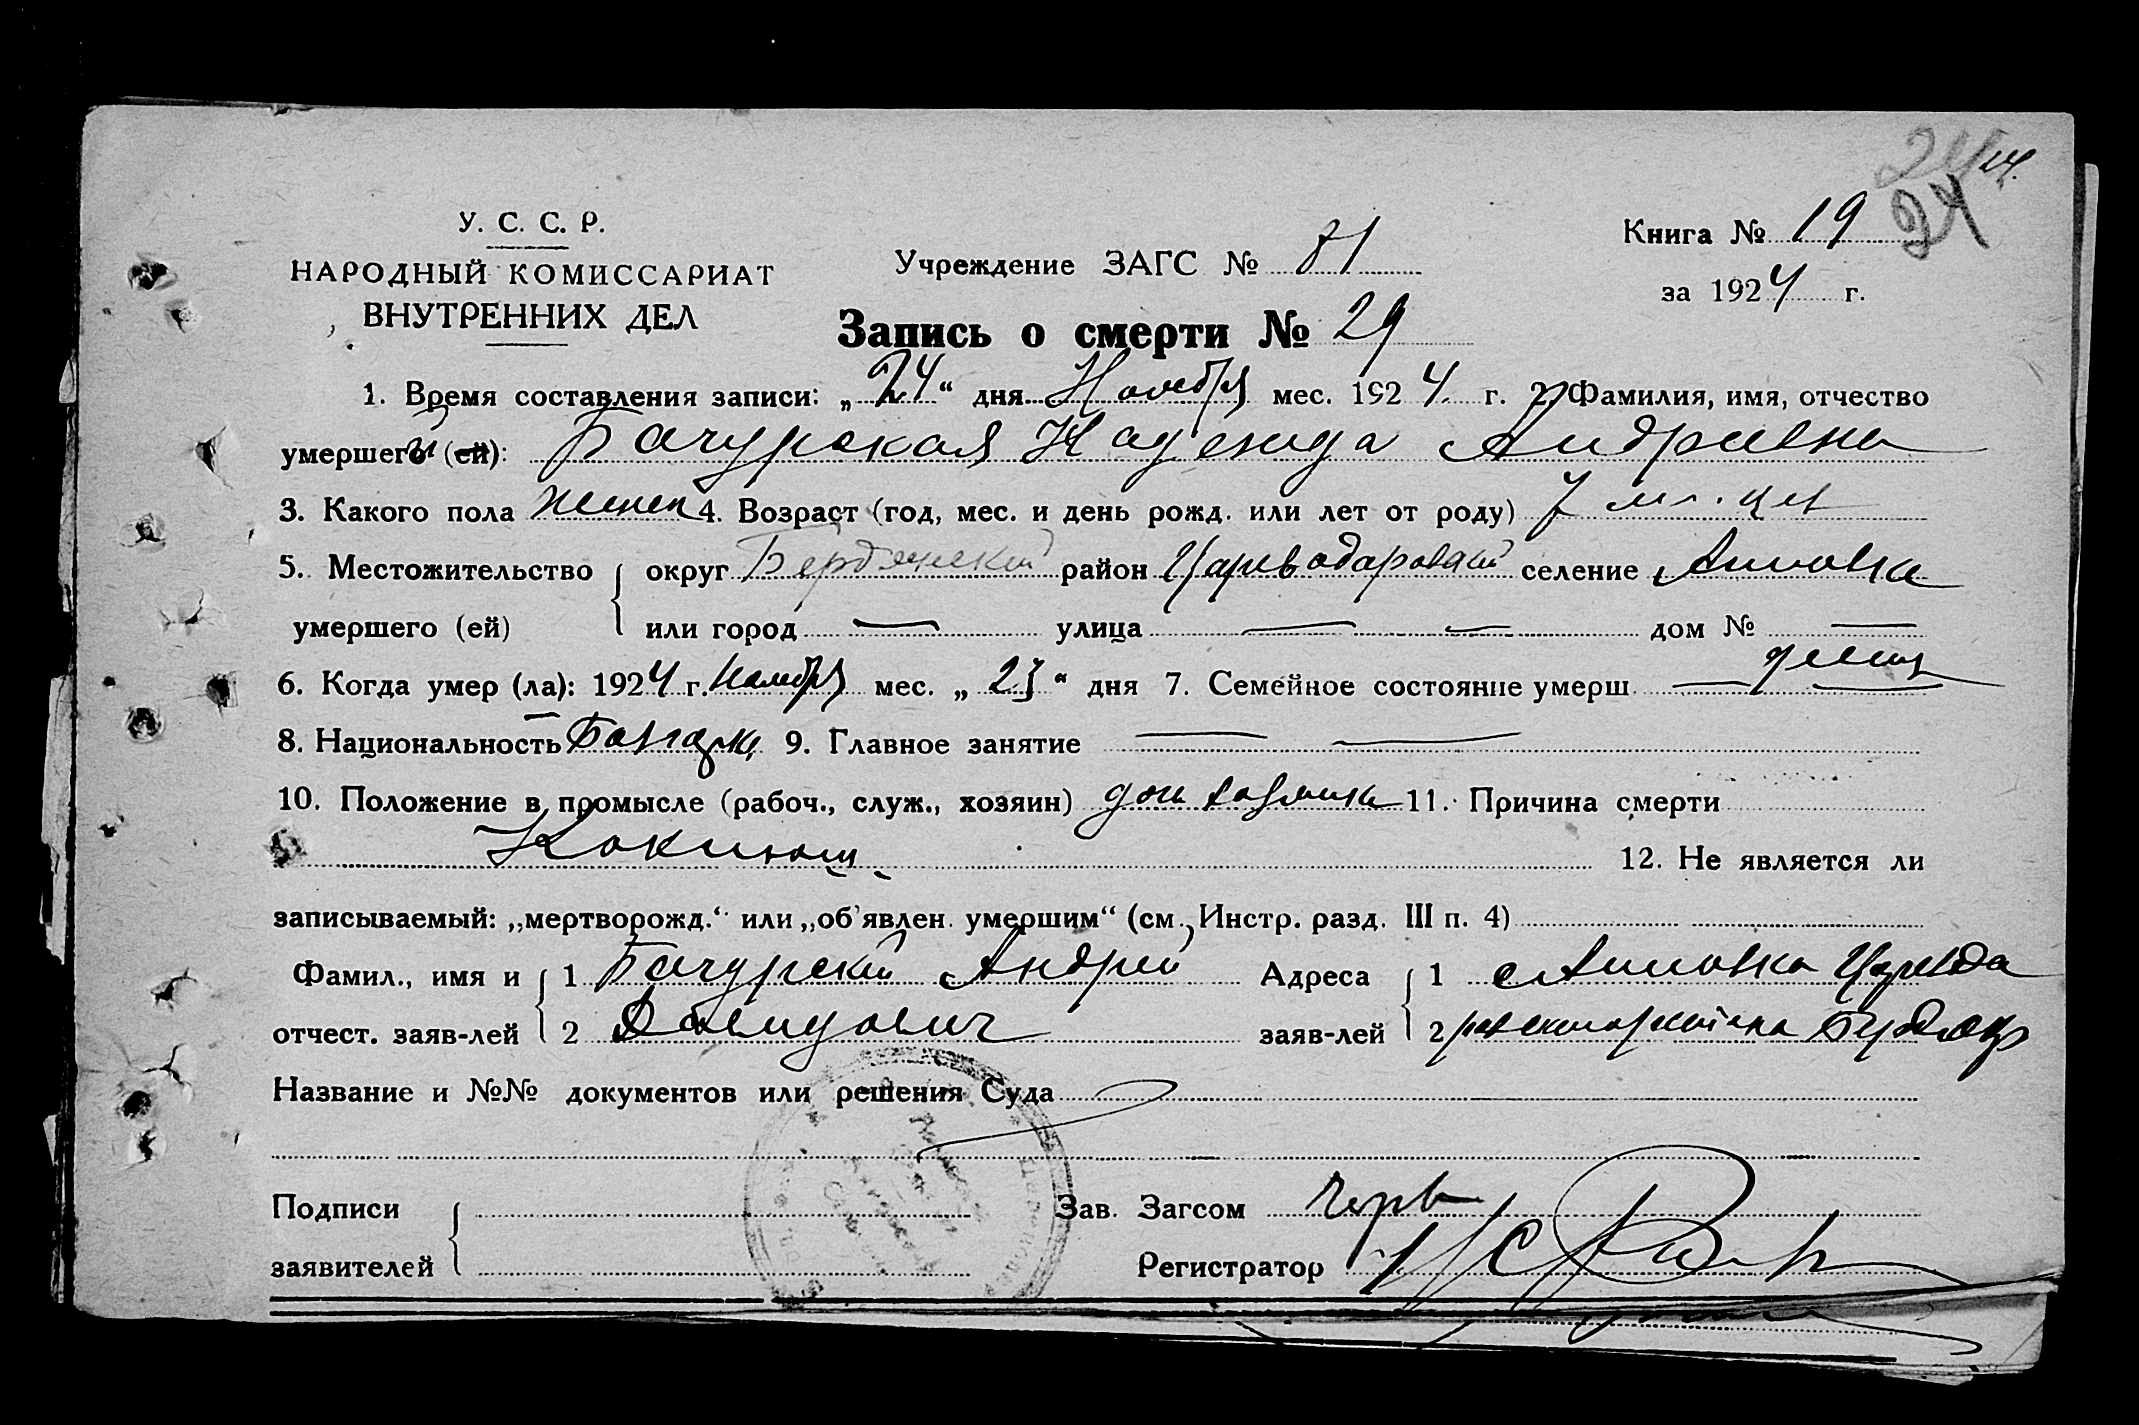 24 24.
24
У. С. С. Р.
НАРОДНЫЙ КОМИССАРИАТ
ВНУТРЕННИХ ДЕЛ
Учреждение ЗАГС № 81
Книга № 19
за 1924 г.
Запись о смерти № 29
1. Время составления записи: „24“ дня Ноября мес. 1924 г. 2. Фамилия, имя, отчество
умершего (ей): Бачурская Надежда Андреевна
3. Какого пола женск 4. Возраст (год, мес. и день рожд. или лет от роду) 7
5. Местожительство округ Бердянский район Цареводаровский селение
умершего (ей) или город — улица — — дом № —
6. Когда умер (ла): 1924 г. Ноября мес. „23“ дня 7. Семейное состояние умерш.
8. Национальность 9. Главное занятие — —
10. Положение в промысле (рабоч., служ., хозяин) дочь хозяина 11. Причина смерти
Коклюш 12. Не является ли
записываемый: „мертворожд.“ или „об'явлен. умершим“ (см. Инстр. разд. III п. 4)
Фамил., имя и 1 Бачурский Андрей Адреса 1
отчест. заяв-лей 2 Давидович заяв-лей 2
Название и №№ документов или решения Суда
Подписи Зав. Загсом
заявителей Регистратор